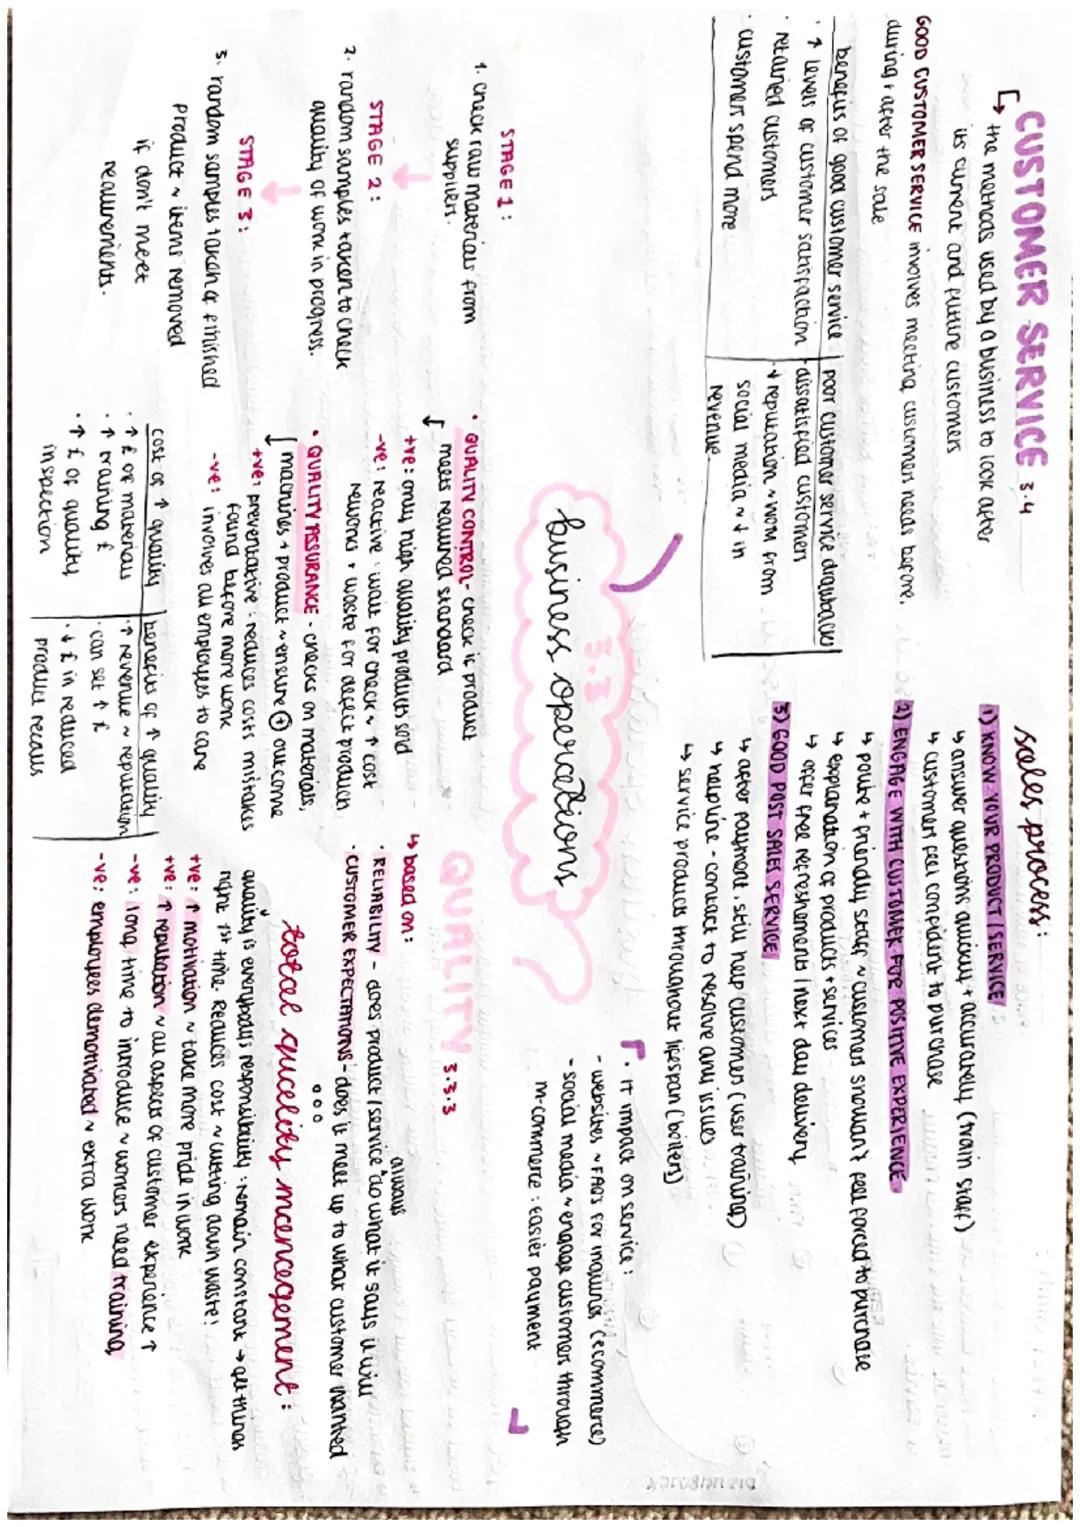 CUSTOMER SERVICE 3.4
↳ the methods used by a business to look after
its current and future customers
GOOD CUSTOMER SERVICE involves meeting customers needs before,
during + after the sale
benefits of good customer service
· ↑ levels of customer satisfaction
· retained customers
· customers spend more
poor customer service drawbacks
· dissatisfied customers
· ↓ reputation ~ WOM from
social media ~ ↓ in
revenue
sales process:
1) KNOW YOUR PRODUCT / SERVICE
↳ answer questions quickly + accurately (train staff)
↳ customers feel confident to purchase
2) ENGAGE WITH CUSTOMER FOR POSITIVE EXPERIENCE
↳ polite + friendly staff ~ customers shouldn't feel forced to purchase
↳ explanation of products + services
↳ offer free refreshments / next day delivery
3) GOOD POST SALES SERVICE
↳ after payment, still help customers (user training)
↳ helpline - contact to resolve any issues
↳ service products throughout lifespan (boilers)
3.3
business operations
· IT impact on service:
- websites ~ FAQs for inquiries (ecommerce)
- social media ~ engage customers through
m-commerce : easier payment
STAGE 1:
1. check raw materials from
suppliers.
STAGE 2:
2. random samples taken to check
quality of work in progress.
STAGE 3:
3. random samples taken of finished
product ~ items removed
if don't meet
requirements.
· QUALITY CONTROL - check if product
meets required standard
+ve: only high quality products sold
-ve: reactive : wait for check ~ ↑ cost
reworks + waste for defect products
· QUALITY ASSURANCE - checks on materials,
machines + product ~ ensure + outcome
+ve: preventative : reduces costs mistakes
found before more work
-ve: involves all employees to care
cost of ↑ quality
· ↑ £ of materials
· ↑ training £
· ↑ £ of quality
inspection
benefits of ↑ quality
· ↑ revenue ~ reputation
· can set ↑ £
· ↓ £ in reduced
product recalls
QUALITY 3.3.3
↳ based on:
always
· RELIABILITY - does product / service do what it says it will
· CUSTOMER EXPECTATIONS - does it meet up to what customer wanted
total quality management:
quality is everybodys responsibility : remain constant → get things
right 1st time. Reduces cost ~ cutting down waste!
+ve: ↑ motivation ~ take more pride in work
+ve: ↑ reputation ~ all aspects of customer experience ↑
-ve: long time to introduce ~ workers need training
-ve: employees demotivated ~ extra work